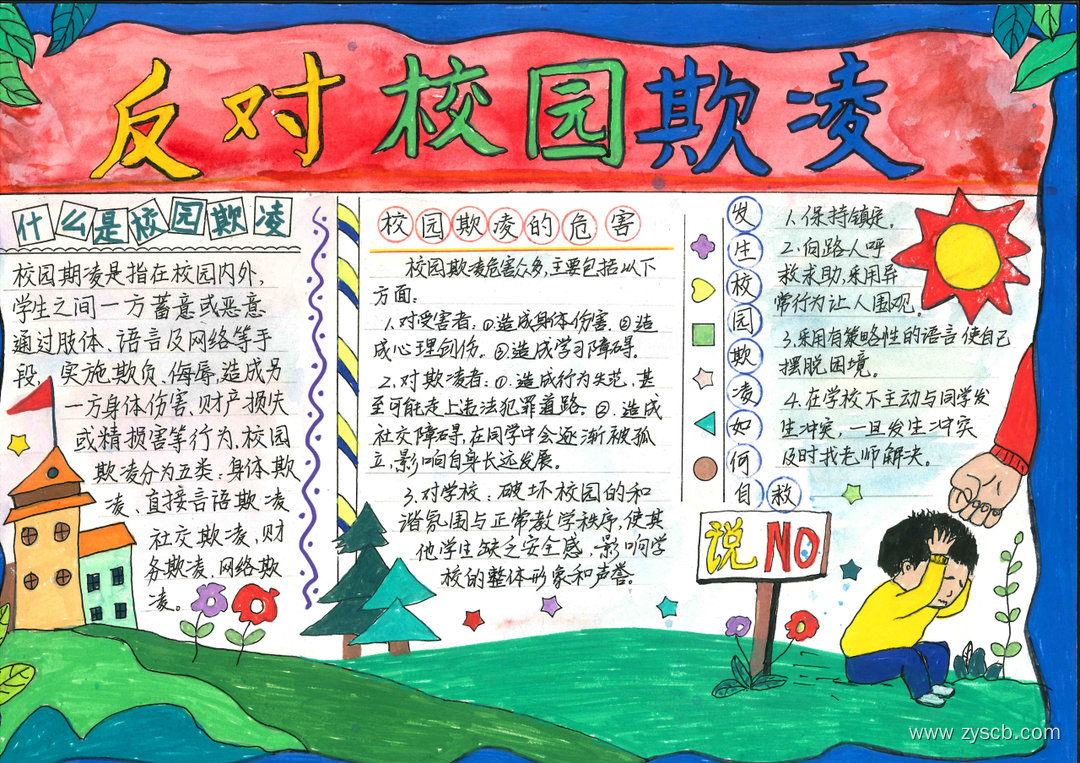 反对校园欺凌
什么是校园欺凌
校园期凌是指在校园内外,
学生之间一方蓄意或恶意
通过肢体、语言及网络等手
段,实施欺负、侮辱,造成另
一方身体伤害、财产损失
或精损害等行为,校园
欺凌分为五类:身体欺
凌、直接言语欺凌
社交欺凌,财
务欺凌、网络欺
凌。
校园欺凌的危害
校园欺凌危害众多,主要包括以下
方面:
1.对受害者:①造成身体伤害.②造
成心理创伤。③造成学习障碍。
2.对欺凌者:①.造成行为失范,甚
至可能走上违法犯罪道路.②.造成
社交障碍,在同学中会逐渐被孤
立,影响自身长远发展。
3.对学校:破坏校园的和
谐氛围与正常教学秩序,使其
他学生缺乏安全感,影响学
校的整体形象和声誉。
发生校园欺凌如何自救
1.保持镇定。
2.向路人呼
救求助,采用异
常行为让人围观。
3.采用有策略性的语言使自己
摆脱困境。
4.在学校不主动与同学发
生冲突,一旦发生冲突
及时找老师解决。
说NO
www.zyscb.com